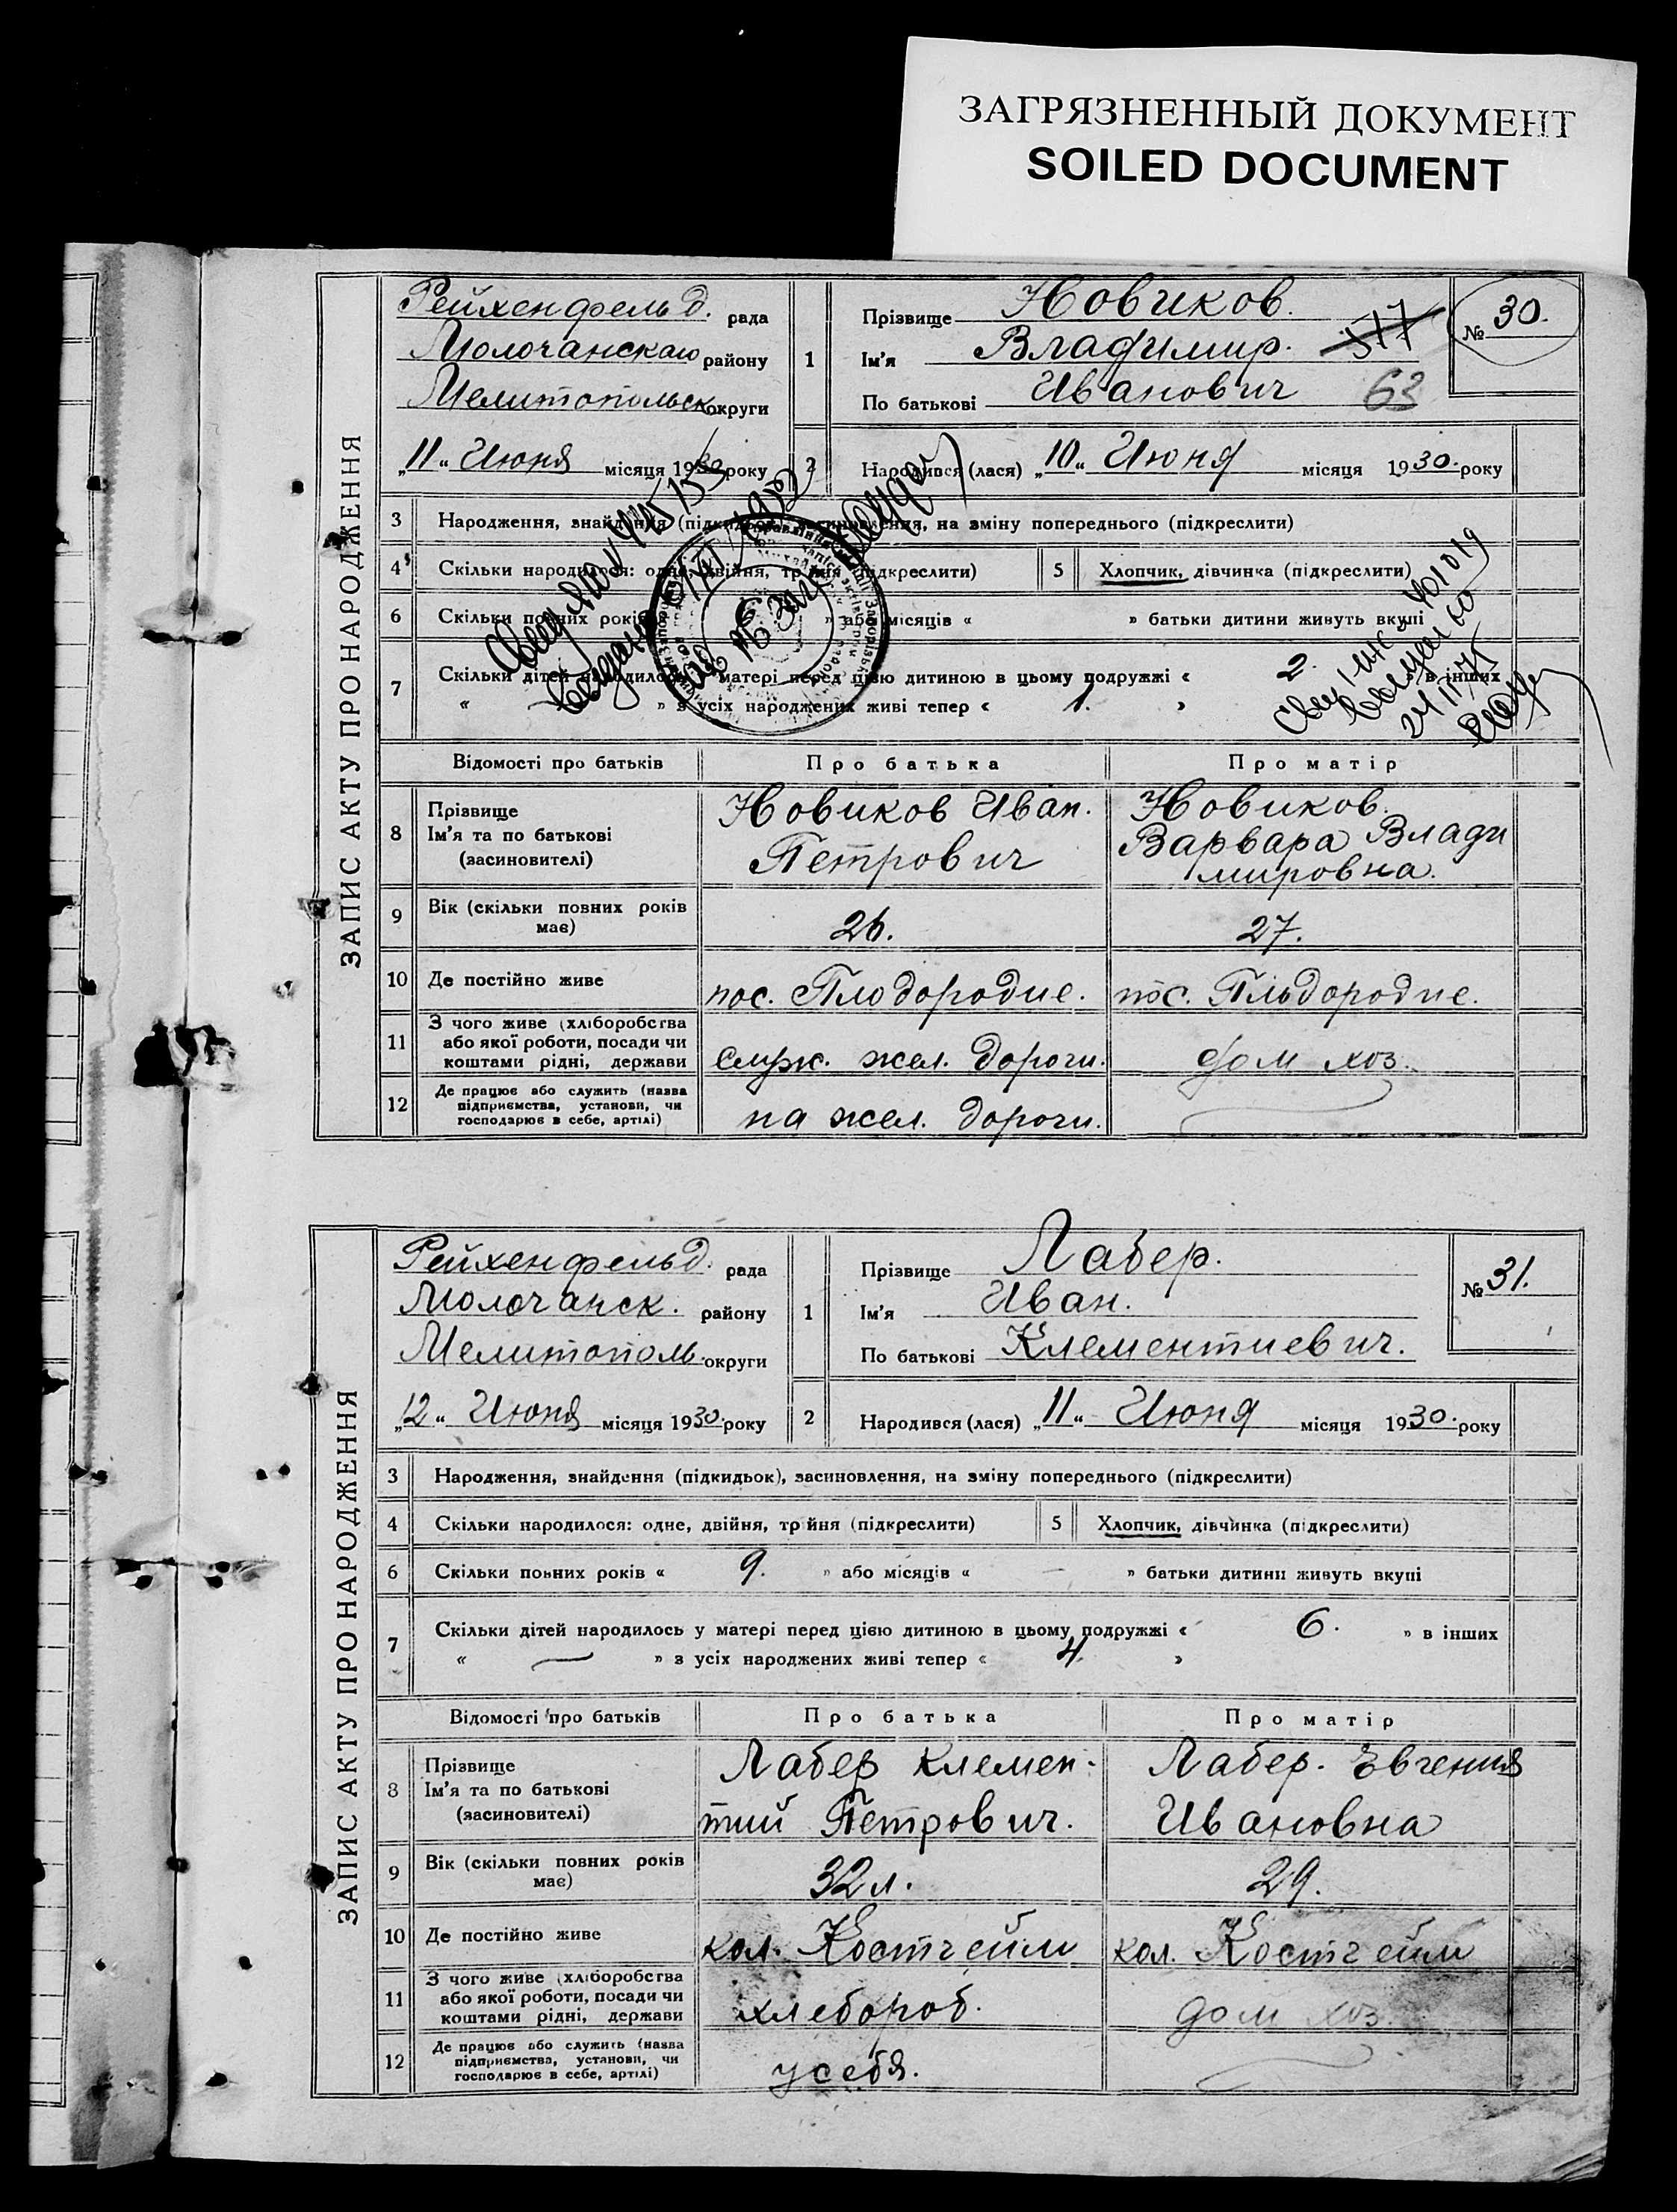 ЗАГРЯЗНЕННЫЙ ДОКУМЕНТ
SOILED DOCUMENT
ЗАПИС АКТУ ПРО НАРОДЖЕННЯ
Рейхенфельд. рада
Молочанскаго району
Мелитопольск округи
„11“ Июня місяця 1930 року
1
Прізвище Новиков.
Ім'я Владимир. 517
По батькові Иванович 63
№ 30.
2
Народився (лася) „10“ Июня місяця 1930. року
3 Народження, знайдення (підкидьок), засиновлення, на зміну попереднього (підкреслити)
4 Скільки народилося: одне, двійня, трійня (підкреслити)
5 Хлопчик, дівчинка (підкреслити)
6 Скільки повних років « 6 » або місяців « » батьки дитини живуть вкупі
7 Скільки дітей народилось у матері перед цією дитиною в цьому подружжі « 2. » в інших
« » з усіх народжених живі тепер « 1. »
Відомості про батьків Про батька Про матір
8 Прізвище
Ім'я та по батькові
(засиновителі)
Новиков Иван.
Петрович
Новиков.
Варвара Влади
мировна.
9 Вік (скільки повних років
має)
26. 27.
10 Де постійно живе пос. Плодородие. пос. Плодородие.
11 З чого живе (хліборобства
або якої роботи, посади чи
коштами рідні, держави
служ. жел. дороги. дом хоз.
12 Де працює або служить (назва
підприємства, установи, чи
господарює в себе, артілі)
на жел. дороги.
ЗАПИС АКТУ ПРО НАРОДЖЕННЯ
Рейхенфельд. рада
Молочанск. району
Мелитополь. округи
„12“ Июня місяця 1930. року
1
Прізвище Лабер.
Ім'я Иван.
По батькові Клементиевич.
№ 31.
2
Народився (лася) „11“ Июня місяця 1930. року
3 Народження, знайдення (підкидьок), засиновлення, на зміну попереднього (підкреслити)
4 Скільки народилося: одне, двійня, трійня (підкреслити)
5 Хлопчик, дівчинка (підкреслити)
6 Скільки повних років « 9. » або місяців « — » батьки дитини живуть вкупі
7 Скільки дітей народилось у матері перед цією дитиною в цьому подружжі « 6. » в інших
« — » з усіх народжених живі тепер « 4. »
Відомості про батьків Про батька Про матір
8 Прізвище
Ім'я та по батькові
(засиновителі)
Лабер Клемен-
тий Петрович.
Лабер. Евгения
Ивановна
9 Вік (скільки повних років
має)
32 л. 29.
10 Де постійно живе кол. Костгейм кол. Костгейм
11 З чого живе (хліборобства
або якої роботи, посади чи
коштами рідні, держави
хлебороб. дом хоз.
12 Де працює або служить (назва
підприємства, установи, чи
господарює в себе, артілі)
у себя.